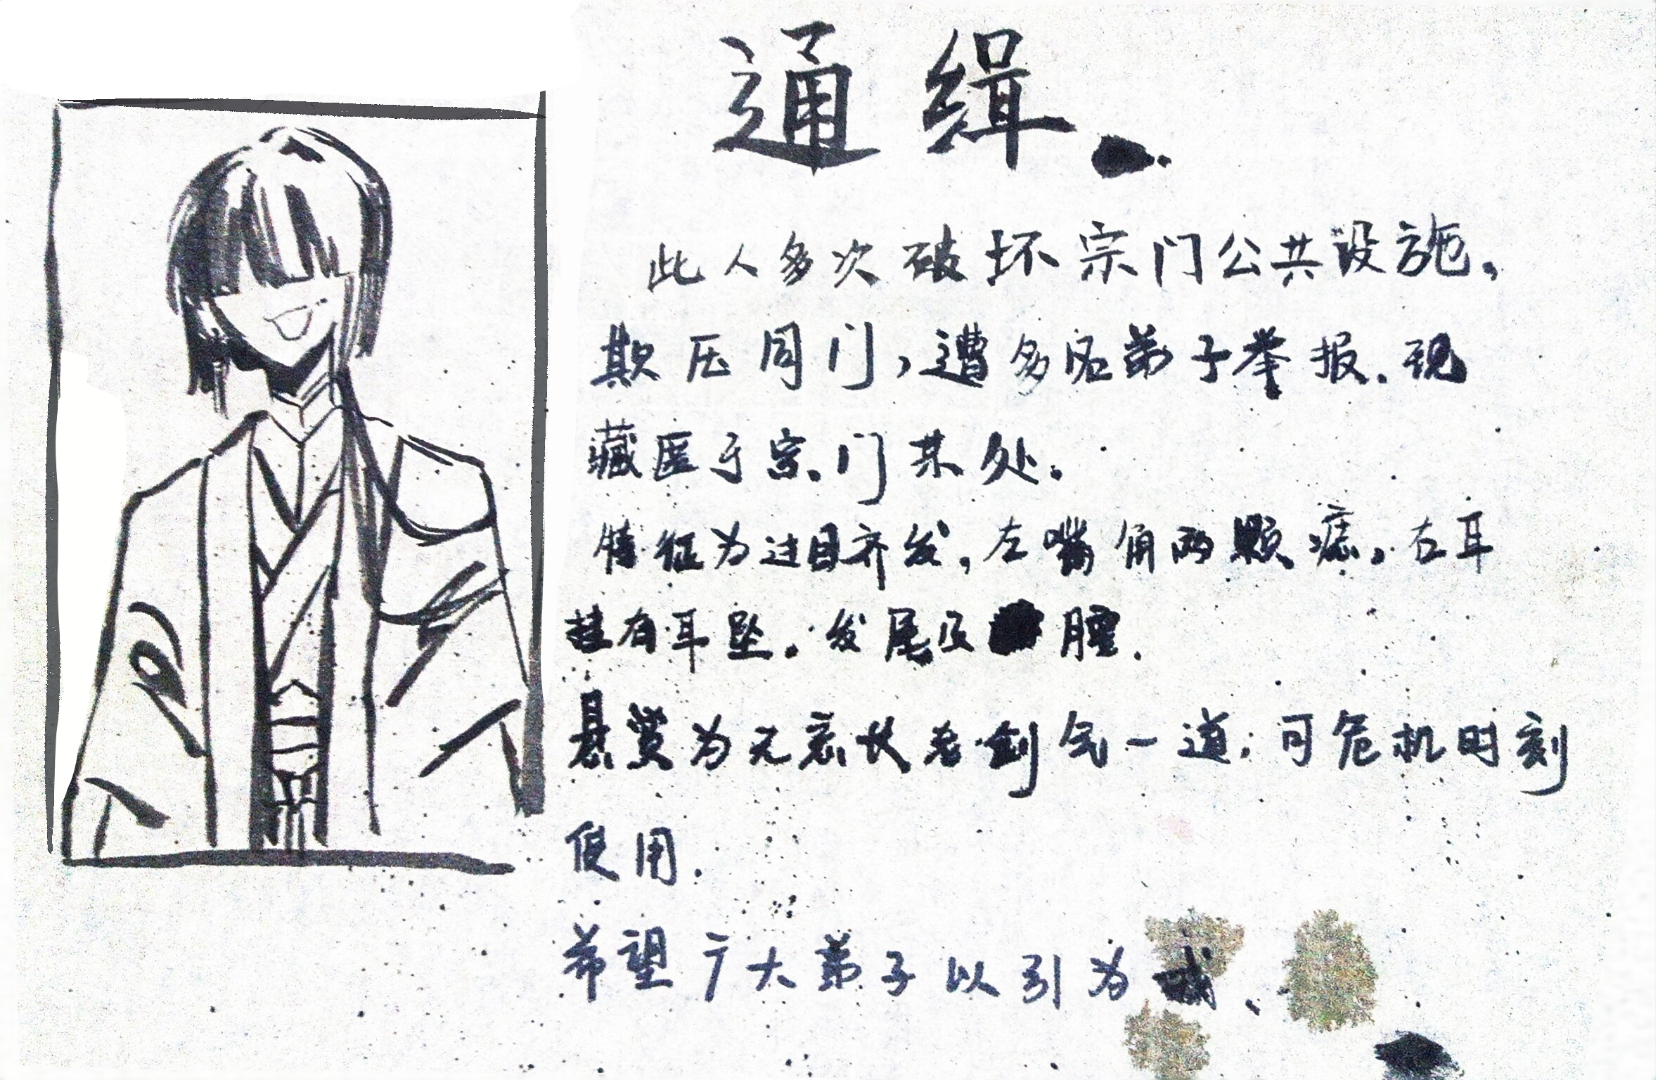 通缉
此人多次破坏宗门公共设施，
欺压同门，遭多名弟子举报．现
藏匿于宗门某处．
特征为过目齐发，左嘴角两颗痣，右耳
挂有耳坠．发尾及腰．
悬赏为无哀长老剑气一道，可危机时刻
使用．
希望广大弟子以引为戒、